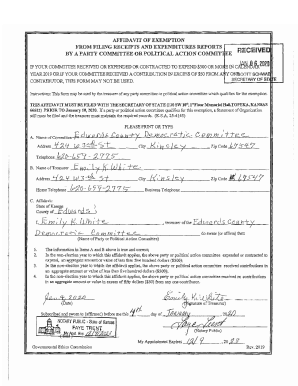 AFFIDAVIT OF EXEMPTION
FROM FILING RECEIPTS AND EXPENDITURES REPORTS
BY A PARTY COMMITTEE OR POLITICAL ACTION COMMITTEE
RECEIVED
JAN 06 2020
SCOTT SCHWAB
SECRETARY OF STATE
IF YOUR COMMITTEE RECEIVED OR EXPENDED OR CONTRACTED TO EXPEND $500 OR MORE IN CALENDAR
YEAR 2019 OR IF YOUR COMMITTEE RECEIVED A CONTRIBUTION IN EXCESS OF $50 FROM ANY ONE
CONTRIBUTOR, THIS FORM MAY NOT BE USED.
Instructions: This form may be used by the treasurer of any party committee or political action committee which qualifies for the exemption.
THIS AFFIDAVIT MUST BE FILED WITH THE SECRETARY OF STATE
PRIOR TO January 10, 2020. If a party or political action committee qualifies for this exemption, a Statement of Organization
will must be filed and the treasurer must maintain the required records. (K.S.A. 25-4145)
PLEASE PRINT OR TYPE
A. Name of Committee Edwards County Democratic Committee
Address 424 W 3rd St City Kinsley Zip Code 67547
Telephone 620-659-2775
B. Name of Treasurer Emily K White
Address 424 W 3rd St City Kinsley Zip Code 67547
Home Telephone 620-659-2775 Business Telephone
C. Affidavit:
State of Kansas
County of Edwards
I, Emily K. White, treasurer of the Edwards County
Democratic Committee do swear (or affirm) that:
(Name of Party or Political Action Committee)
1. The information in Items A and B above is true and correct.
2. In the non-election year to which this affidavit applies, the above party or political action committee expended or contracted to
expend, an aggregate amount or value of less than five hundred dollars ($500).
3. In the non-election year to which the affidavit applies, the above party or political action committee received contributions in
an aggregate amount or value of less than five hundred dollars ($500).
4. In the non-election year to which the affidavit applies, the above party or political action committee received no contributions in
an aggregate amount or value in excess of fifty dollars ($50) from any one contributor.
Jan 4, 2020 Emily K. White
(Signature of Treasurer)
Subscribed and sworn to (affirmed) before me this 4th day of January 2020
NOTARY PUBLIC - State of Kansas
FAYE TRENT
(Notary Public)
My Appointment Expires 22
Governmental Ethics Commission Rev. 2019